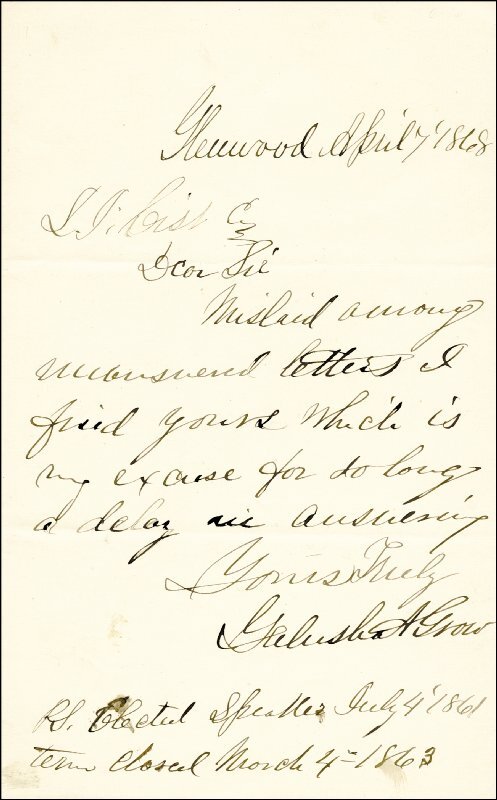 Glenwood April 7' 1868
L. J. Cist Esq
Dear Sir
Mislaid among
unanswered letters I
find yours which is
my excuse for so long
a delay in answering
Yours Truly
Galusha A Grow
P.S. Elected Speaker July 4' 1861
term closed March 4th 1863